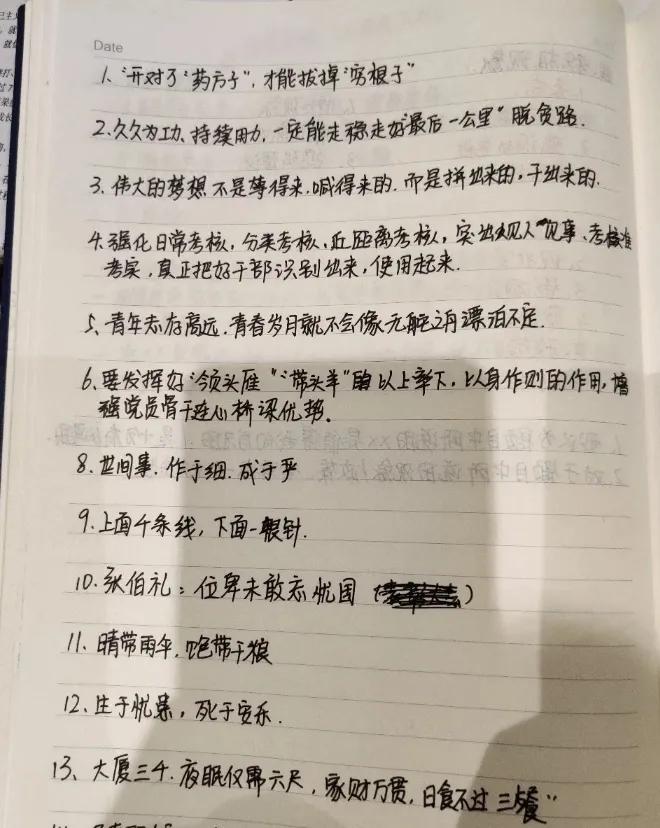 Date
1、"开对了"药方子"，才能拔掉"穷根子"
2、久久为功、持续用力，一定能走稳走好"最后一公里"脱贫路.
3、伟大的梦想 不是等得来、喊得来的. 而是拼出来的，干出来的.
4、强化日常考核，分类考核，近距离考核，突出以人"见事、考核准
考实，真正把好干部识别出来，使用起来.
5、青年志存高远. 青春岁月就不会像无舵之舟漂泊不定.
6、要发挥好"领头雁""带头羊"的以上率下，以身作则的作用，增
强党员骨干连心桥梁优势.
8、世间事. 作于细. 成于严
9、上面千条线，下面一根针.
10、张伯礼：位卑未敢忘忧国（
）
11、晴带雨伞. 饱带干粮
12、生于忧患，死于安乐.
13、大厦三千. 夜眠仅需六尺，家财万贯，日食不过三餐"